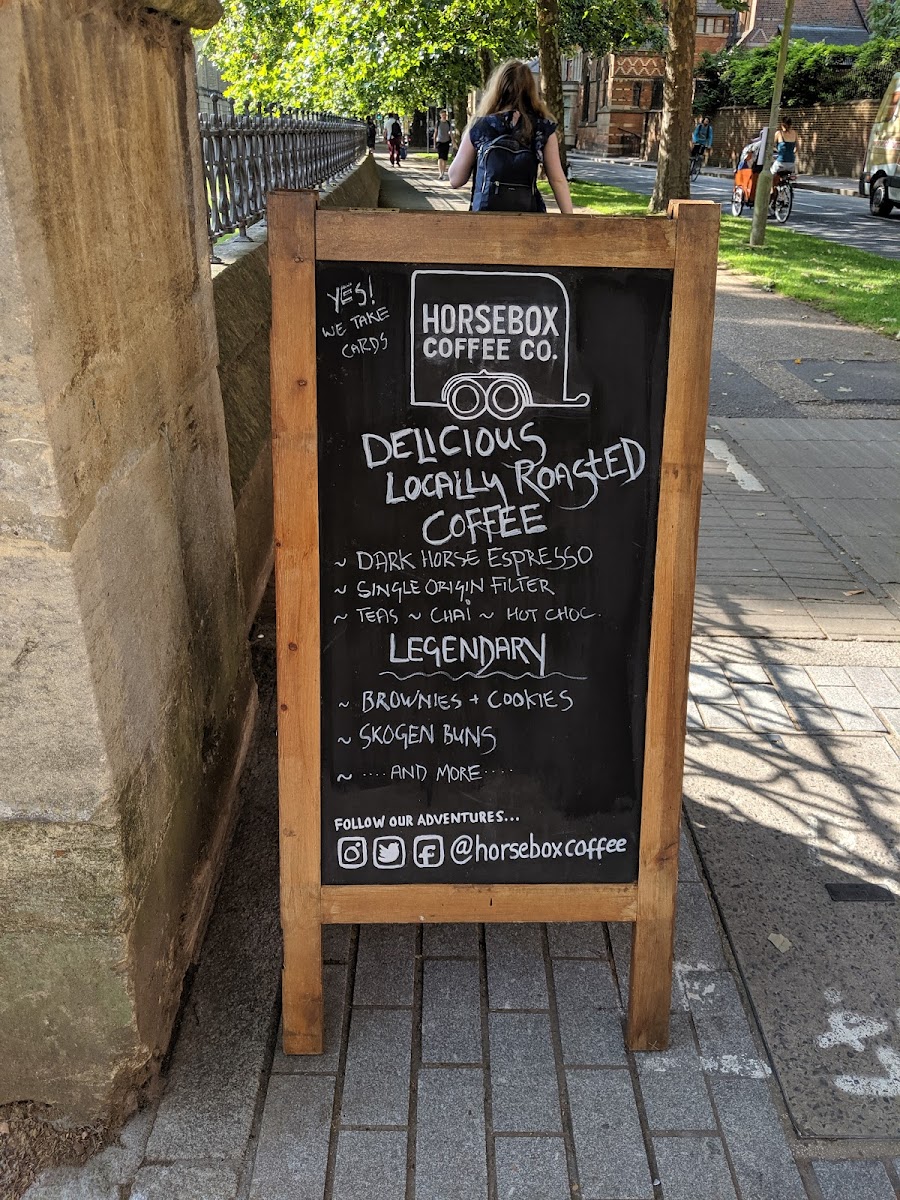 YES!
WE TAKE
CARDS
HORSEBOX
COFFEE CO.
DELICIOUS
LOCALLY ROASTED
COFFEE
~ DARK HORSE ESPRESSO
~ SINGLE ORIGIN FILTER
~ TEAS ~ CHAI ~ HOT CHOC.
LEGENDARY
~ BROWNIES + COOKIES
~ SKOGEN BUNS
~ ....AND MORE....
FOLLOW OUR ADVENTURES...
@horseboxcoffee